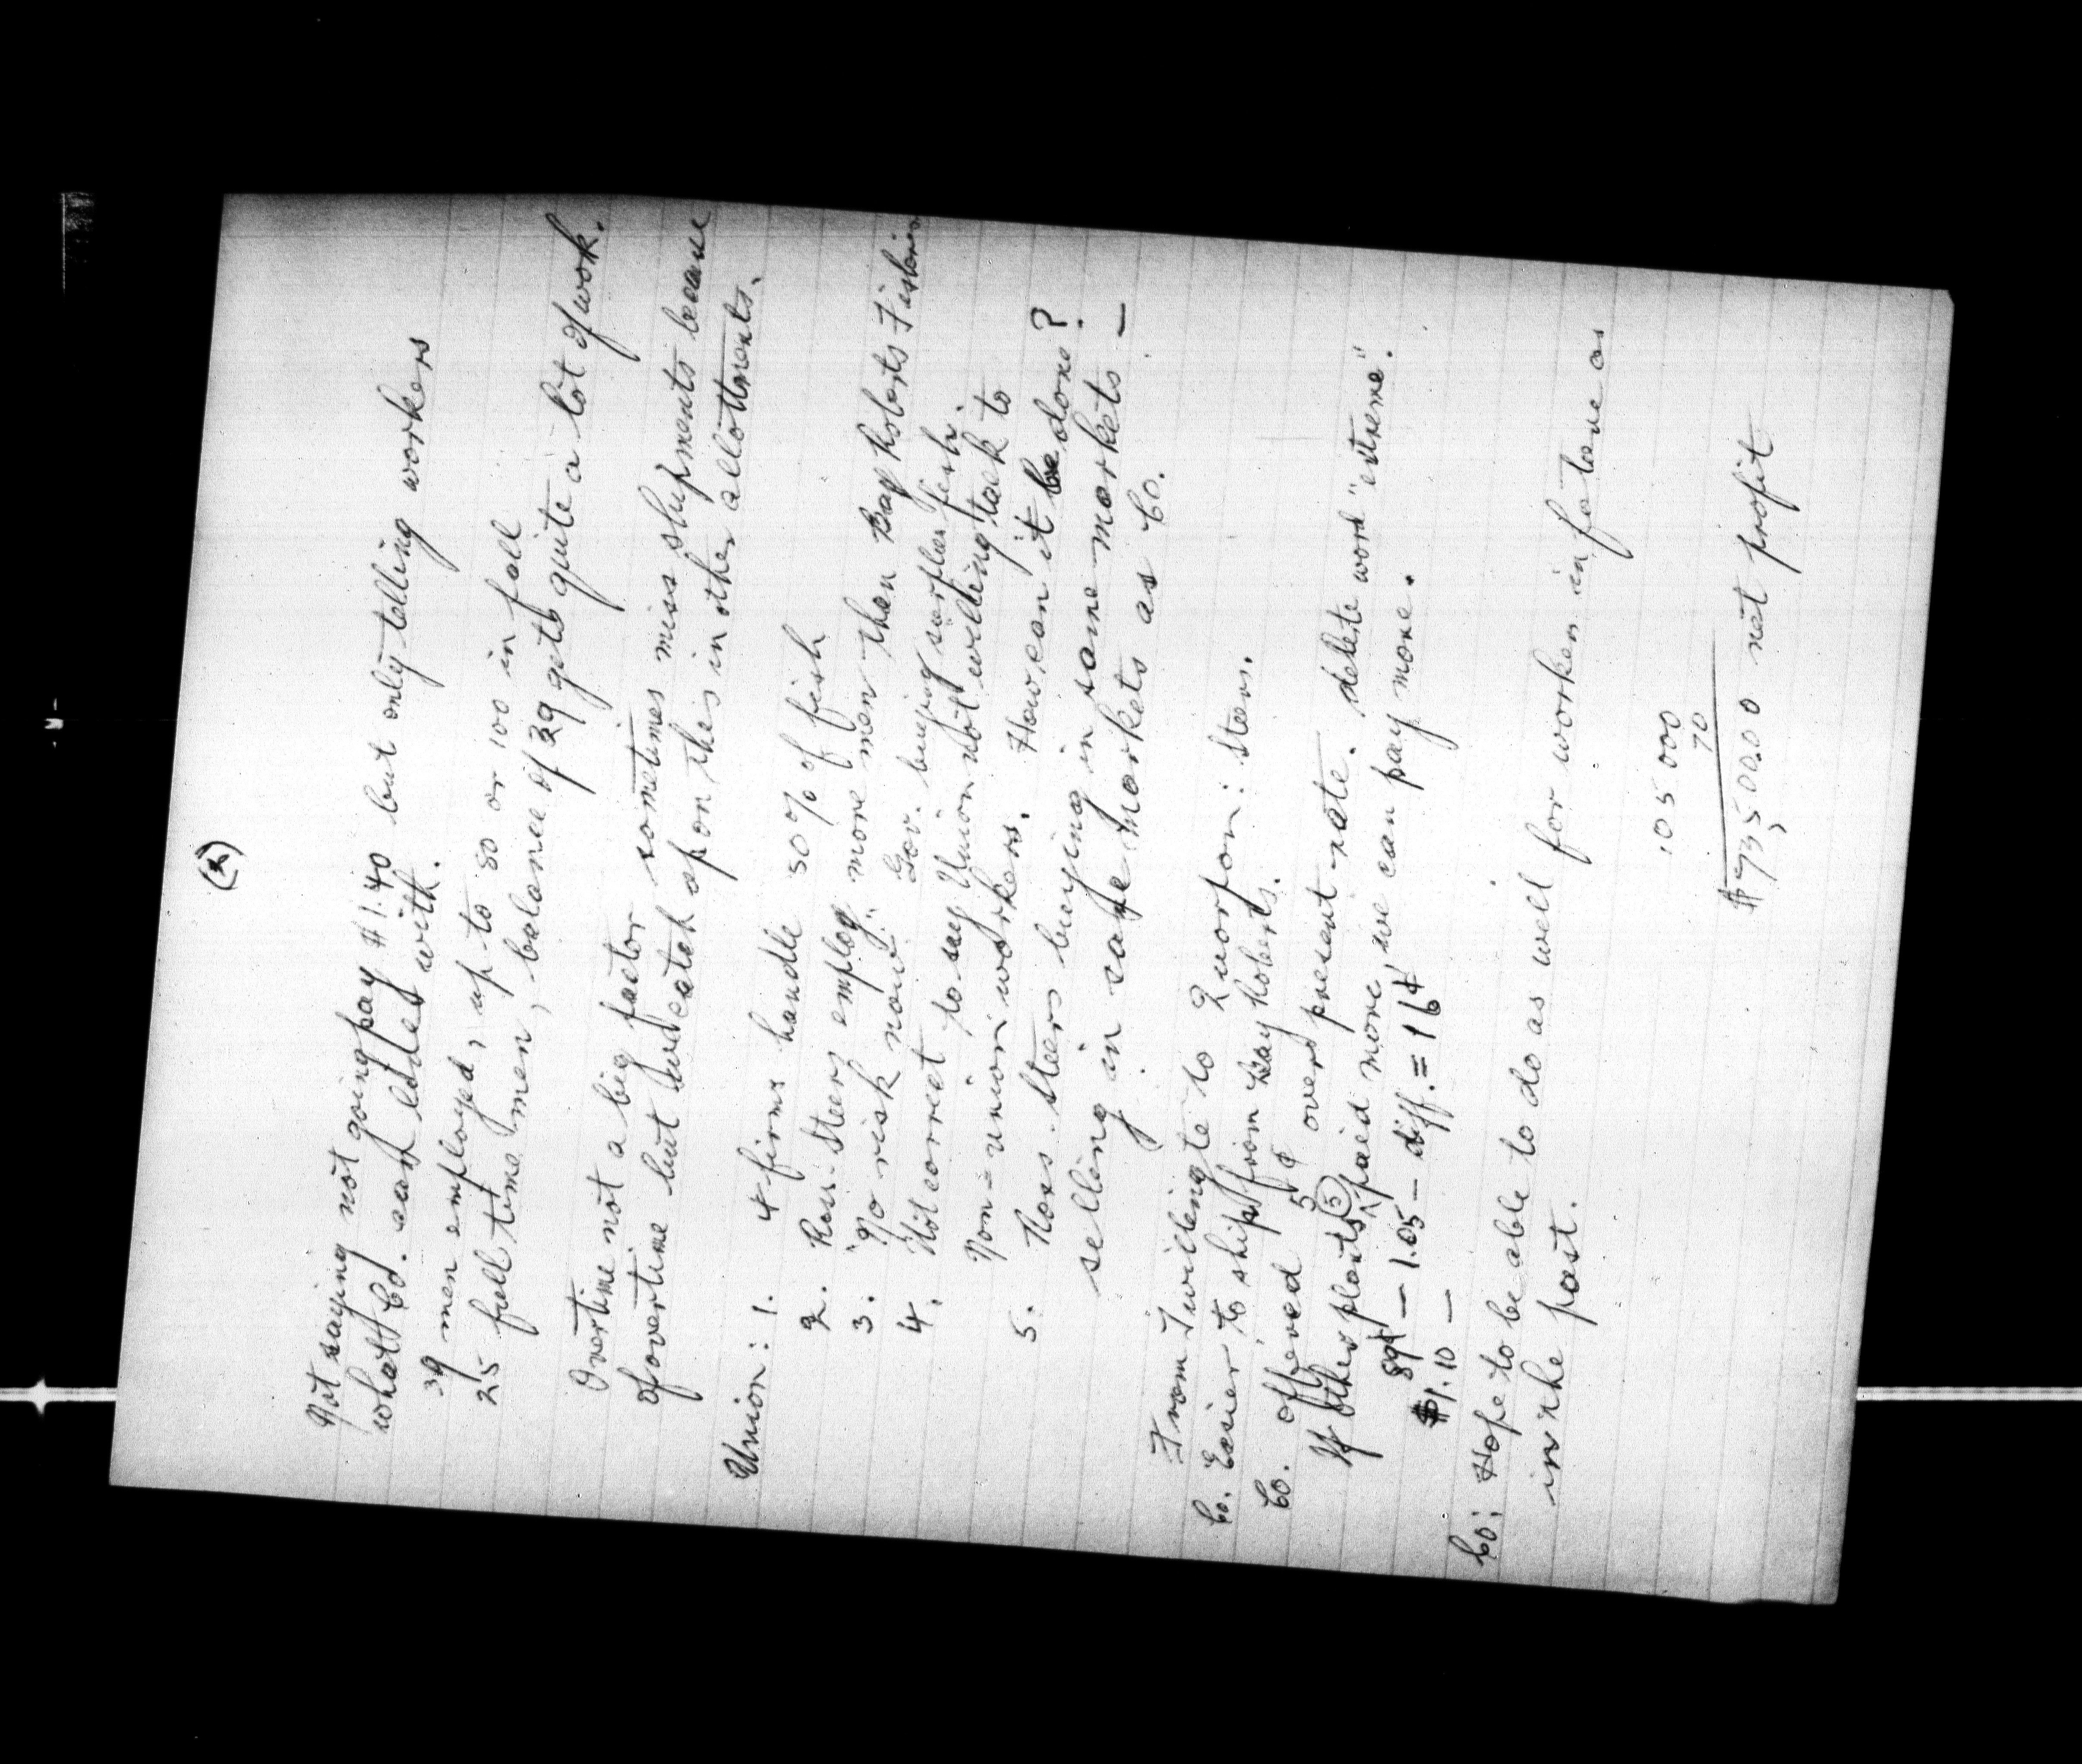 Not saying not going pay $1.40 but only telling workers
what Co. can with.
39 men employed, up to 80 or 100 in fall
25 full time men, balance of 39 gets quite a lot of work.
Overtime not a big factor sometimes miss shipments because
of overtime but catch up on this in other allottments.
Union: 1. 4 firms handle 50% of fish
2. Ross-Steers employ more men than Bay Roberts Fisheries
3. "No risk now". Gov. buying surplus fish.
4. Not correct to say Union not willing talk to
Non-union workers. How can it be done?
5. Ross. Steers buying in same markets —
selling in same markets as Co.
From Twillingate to Quorpon: Steers.
Co. Easier to ship from Bay Roberts.
Co. offered 5 ¢ over present rate. delete word "extreme".
If other plants (5) paid more, we can pay more.
89¢ — 1.05 — diff. = 16¢
$1.10 —
Co: Hope to be able to do as well for workers in future as
in the past.
105 000
70
$ 73,500.00 net profit